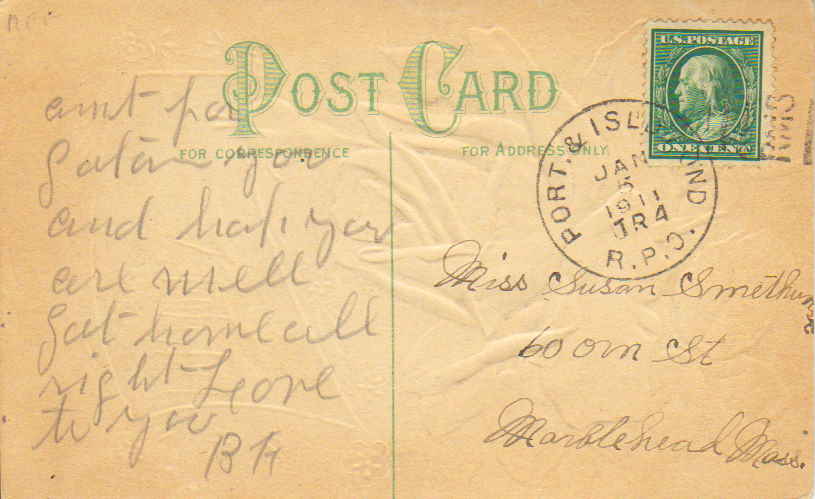 POST CARD
FOR CORRESPONDENCE
FOR ADDRESS ONLY.
U.S. POSTAGE
ONE CENT
PORT. & ISL POND
JAN
5
1911
TR4
R.P.O.
RMS
and
are well
got home all
right Love
to you
BH
Miss Susan Smethurst
60 Orn St
Marblehead Mass.